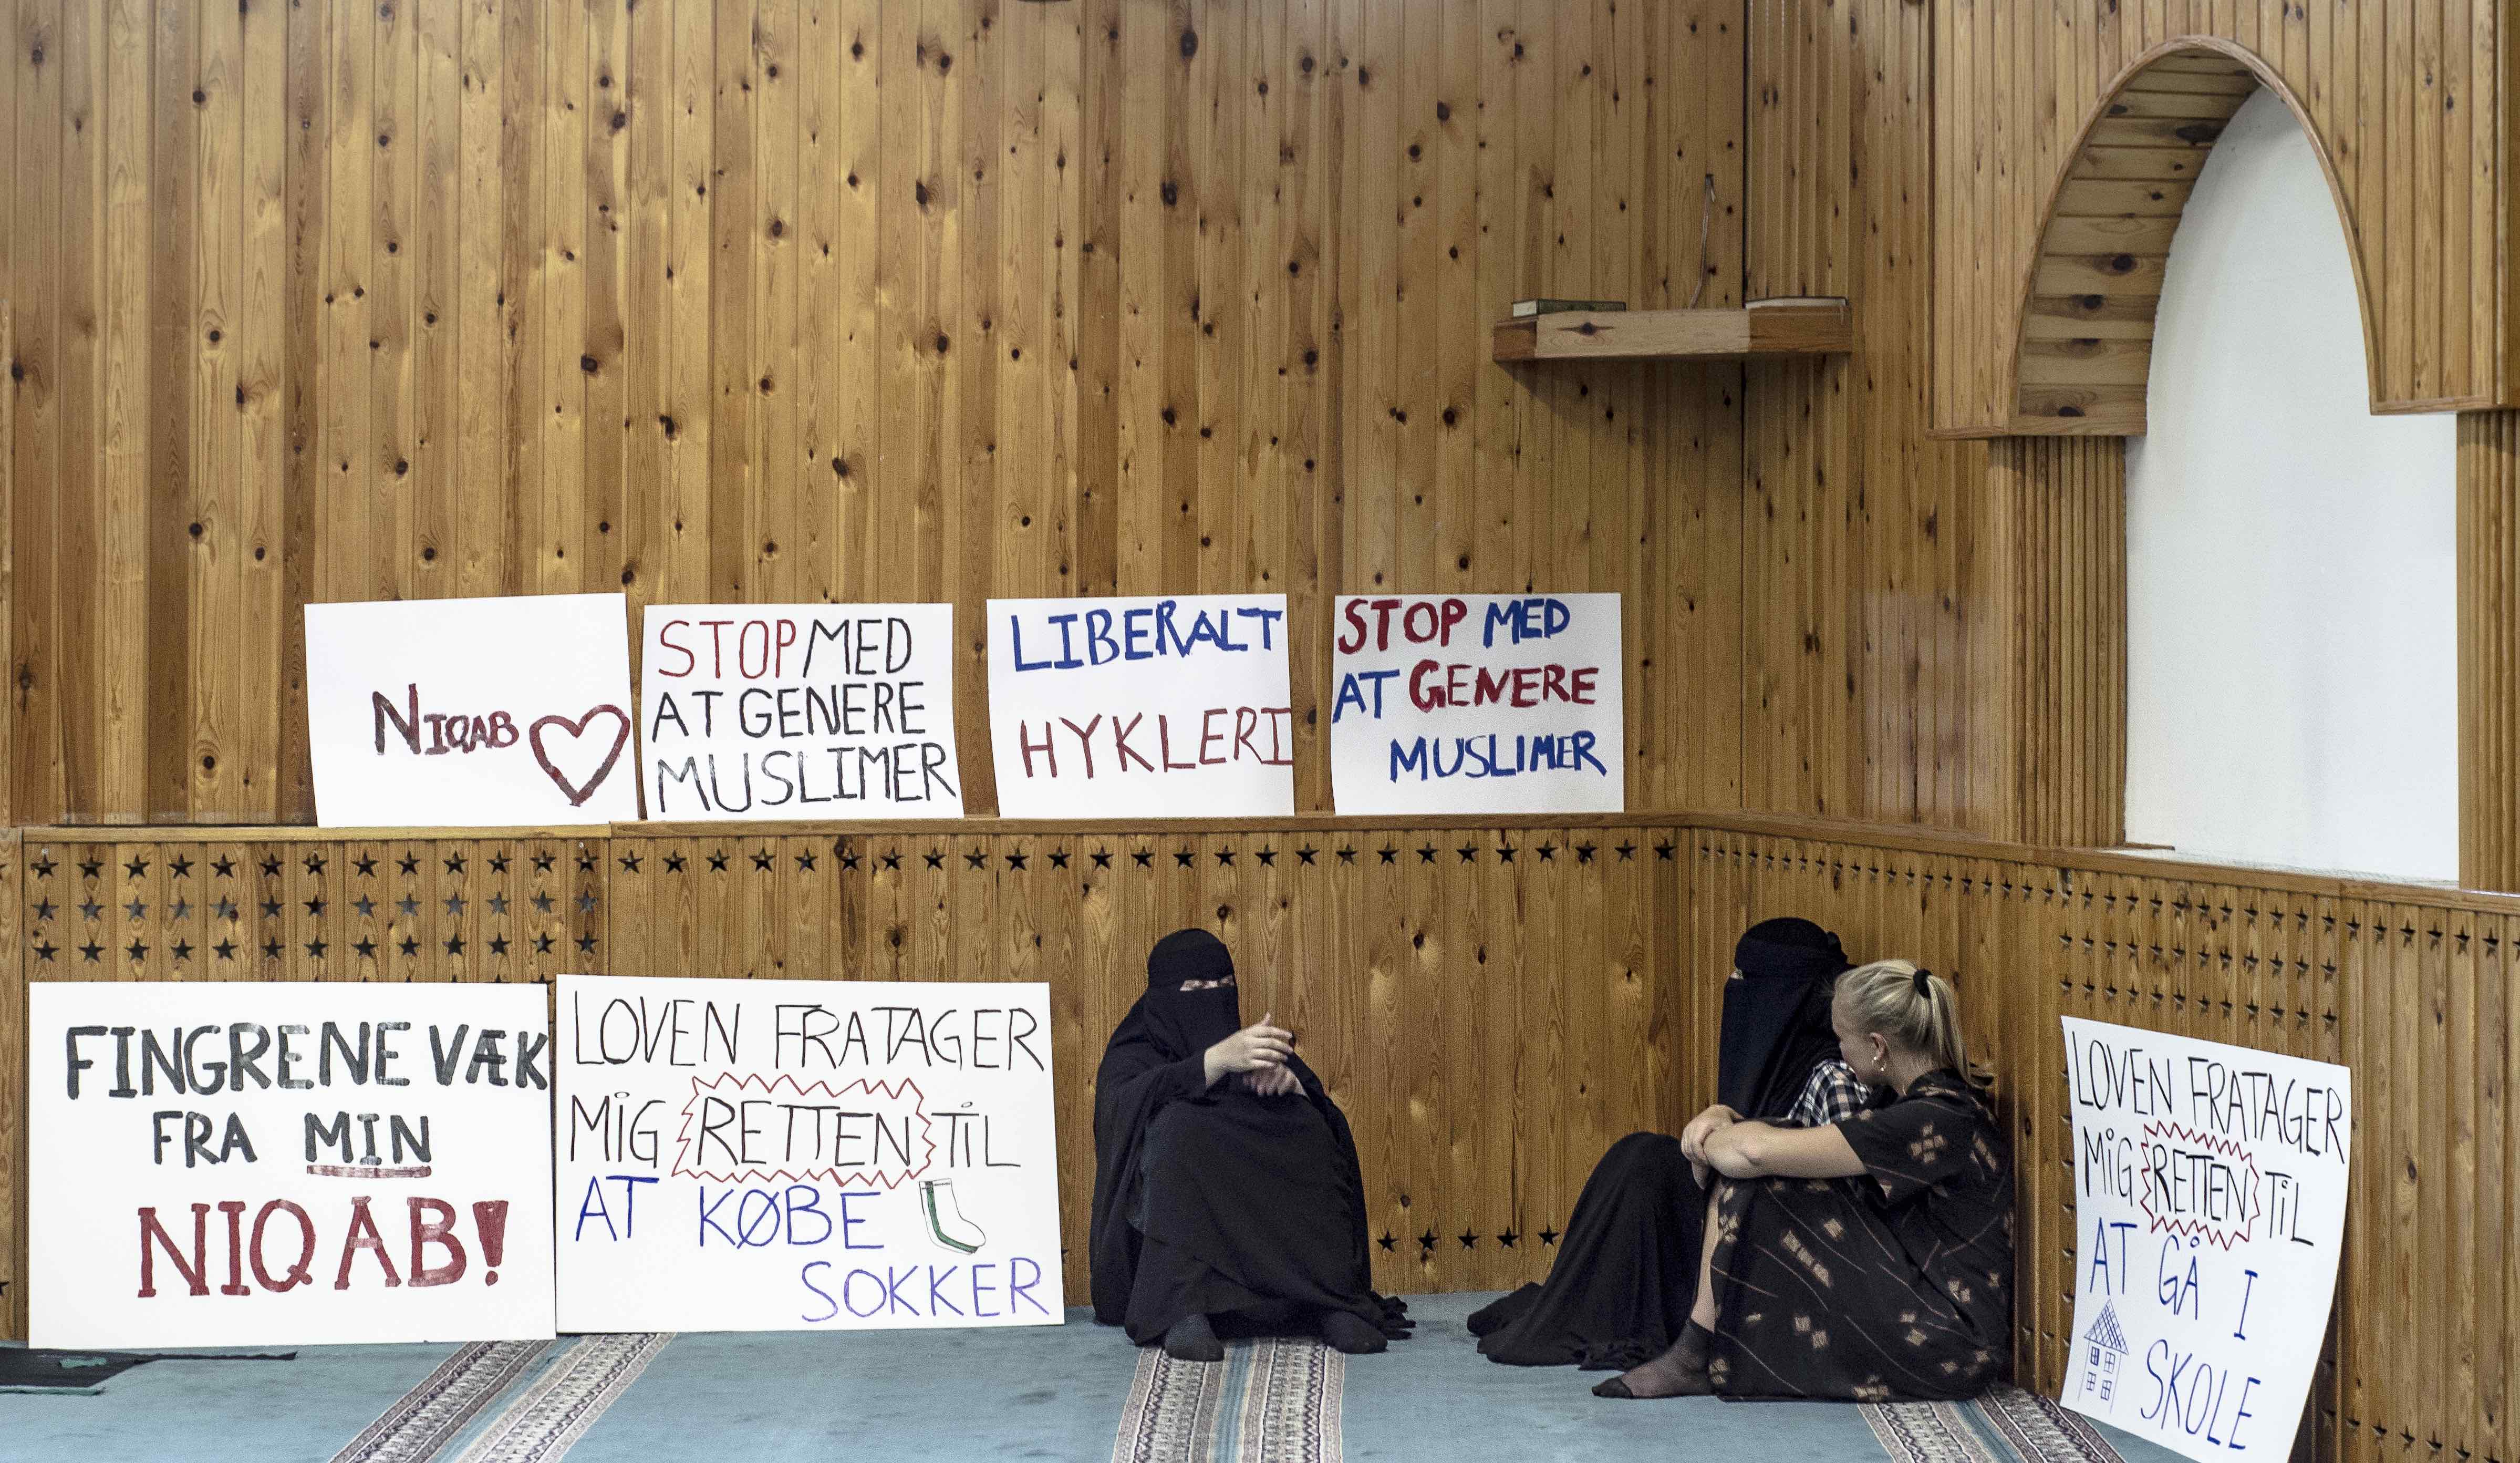 NIQAB
STOP MED
AT GENERE
MUSLIMER
LIBERALT
HYKLERI
STOP MED
AT GENERE
MUSLIMER
FINGRENE VÆK
FRA MIN
NIQAB!
LOVEN FRATAGER
MiG RETTEN TiL
AT KØBE
SOKKER
LOVEN FRATAGER
MiG RETTEN TiL
AT GÅ I
SKOLE